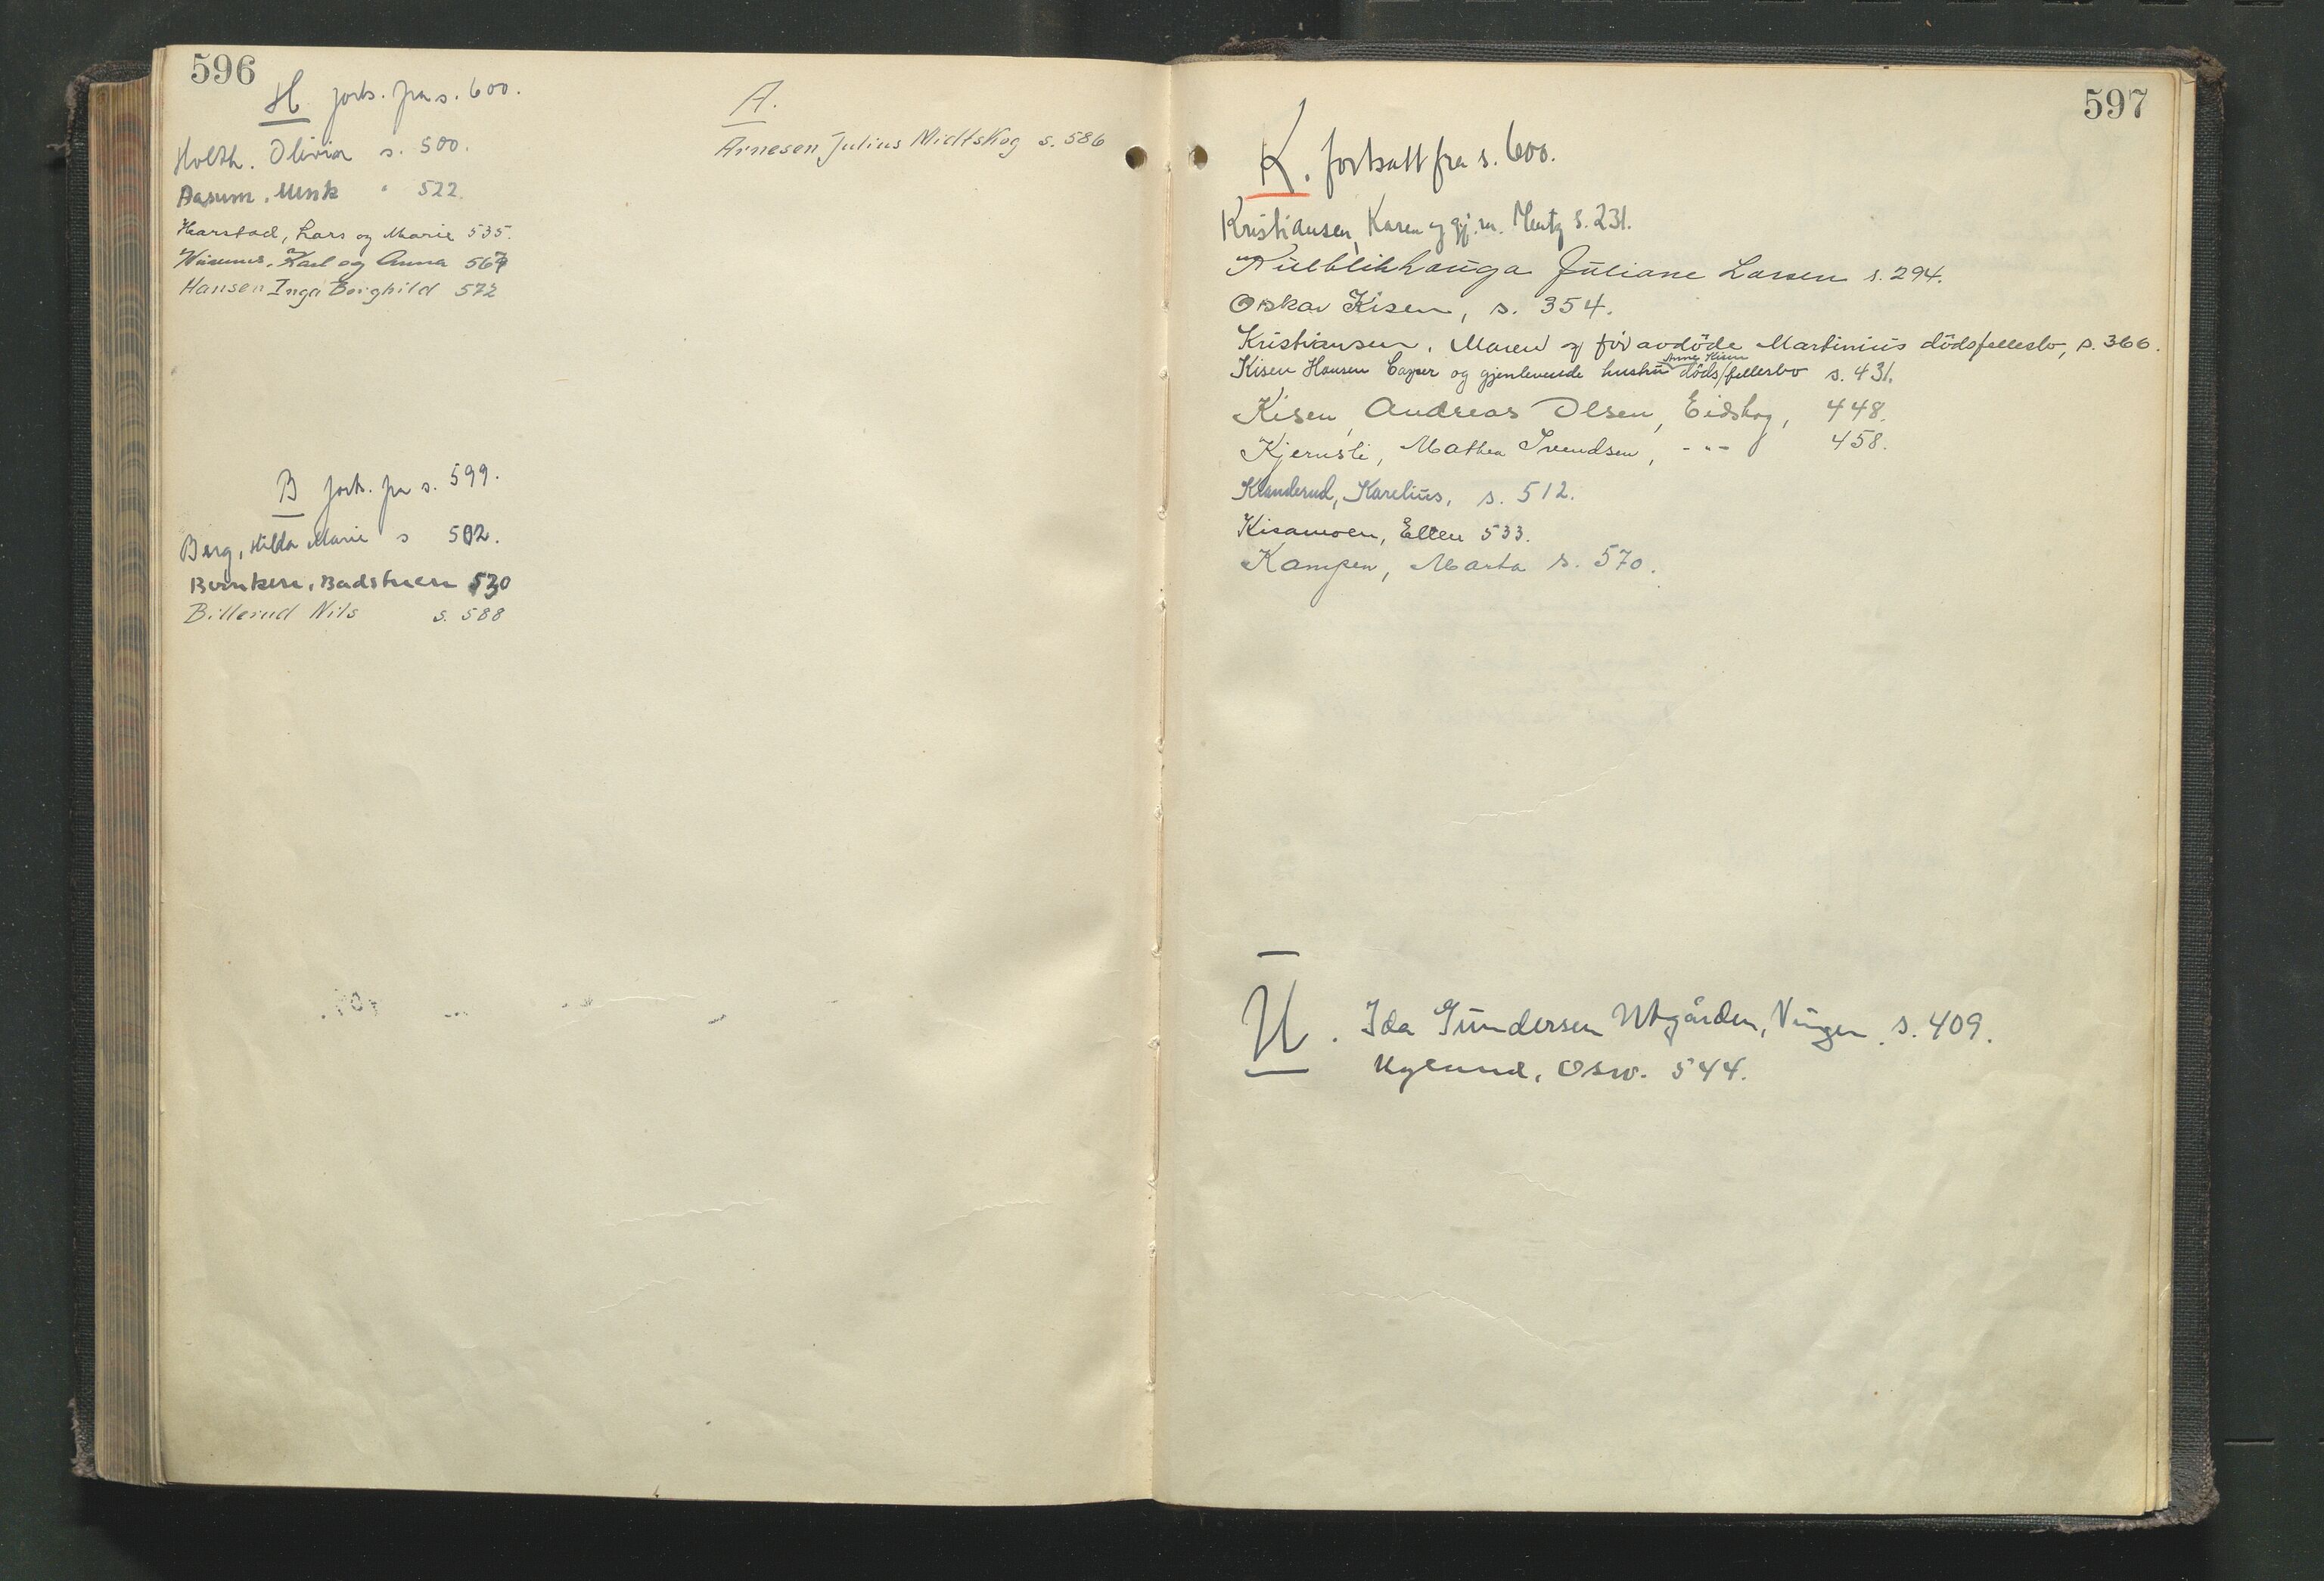 596
H forts. fra s. 600.
Holth. Olivia s. 500.
522.
Harstad, Lars og Marie 535.
Karl og Anna
Hansen Inga Borghild 572
B forts. fra s. 599.
Berg, Hilda Marie s 502.
Badstuen 530
Billerud Nils s. 588
A.
Arnesen Julius Midtskog s. 586
597
K. fortsatt fra s. 600.
Kristiansen, Karen og gj.m. Mentz s. 231.
Kulblikhauga Juliane Larsen s. 294.
Oskar Kisen, s. 354.
Kristiansen, Maren og før avdöde Martinius dödsfellesbo, s. 366.
Kisen Hansen Casper og gjenlevende hustru Anne Kisen döds/fellesbo s. 431.
Kisen, Andreas Olsen, Eidskog, 448.
Kjernsli, Mathea Svendsen, -"- 458.
Klanderud, Karelius, s. 512.
Kisamoen, Ellen 533.
Kampen, Marta s. 570.
U. Ida Gundersen Utgården, Vinger s. 409.
Osw. 544.